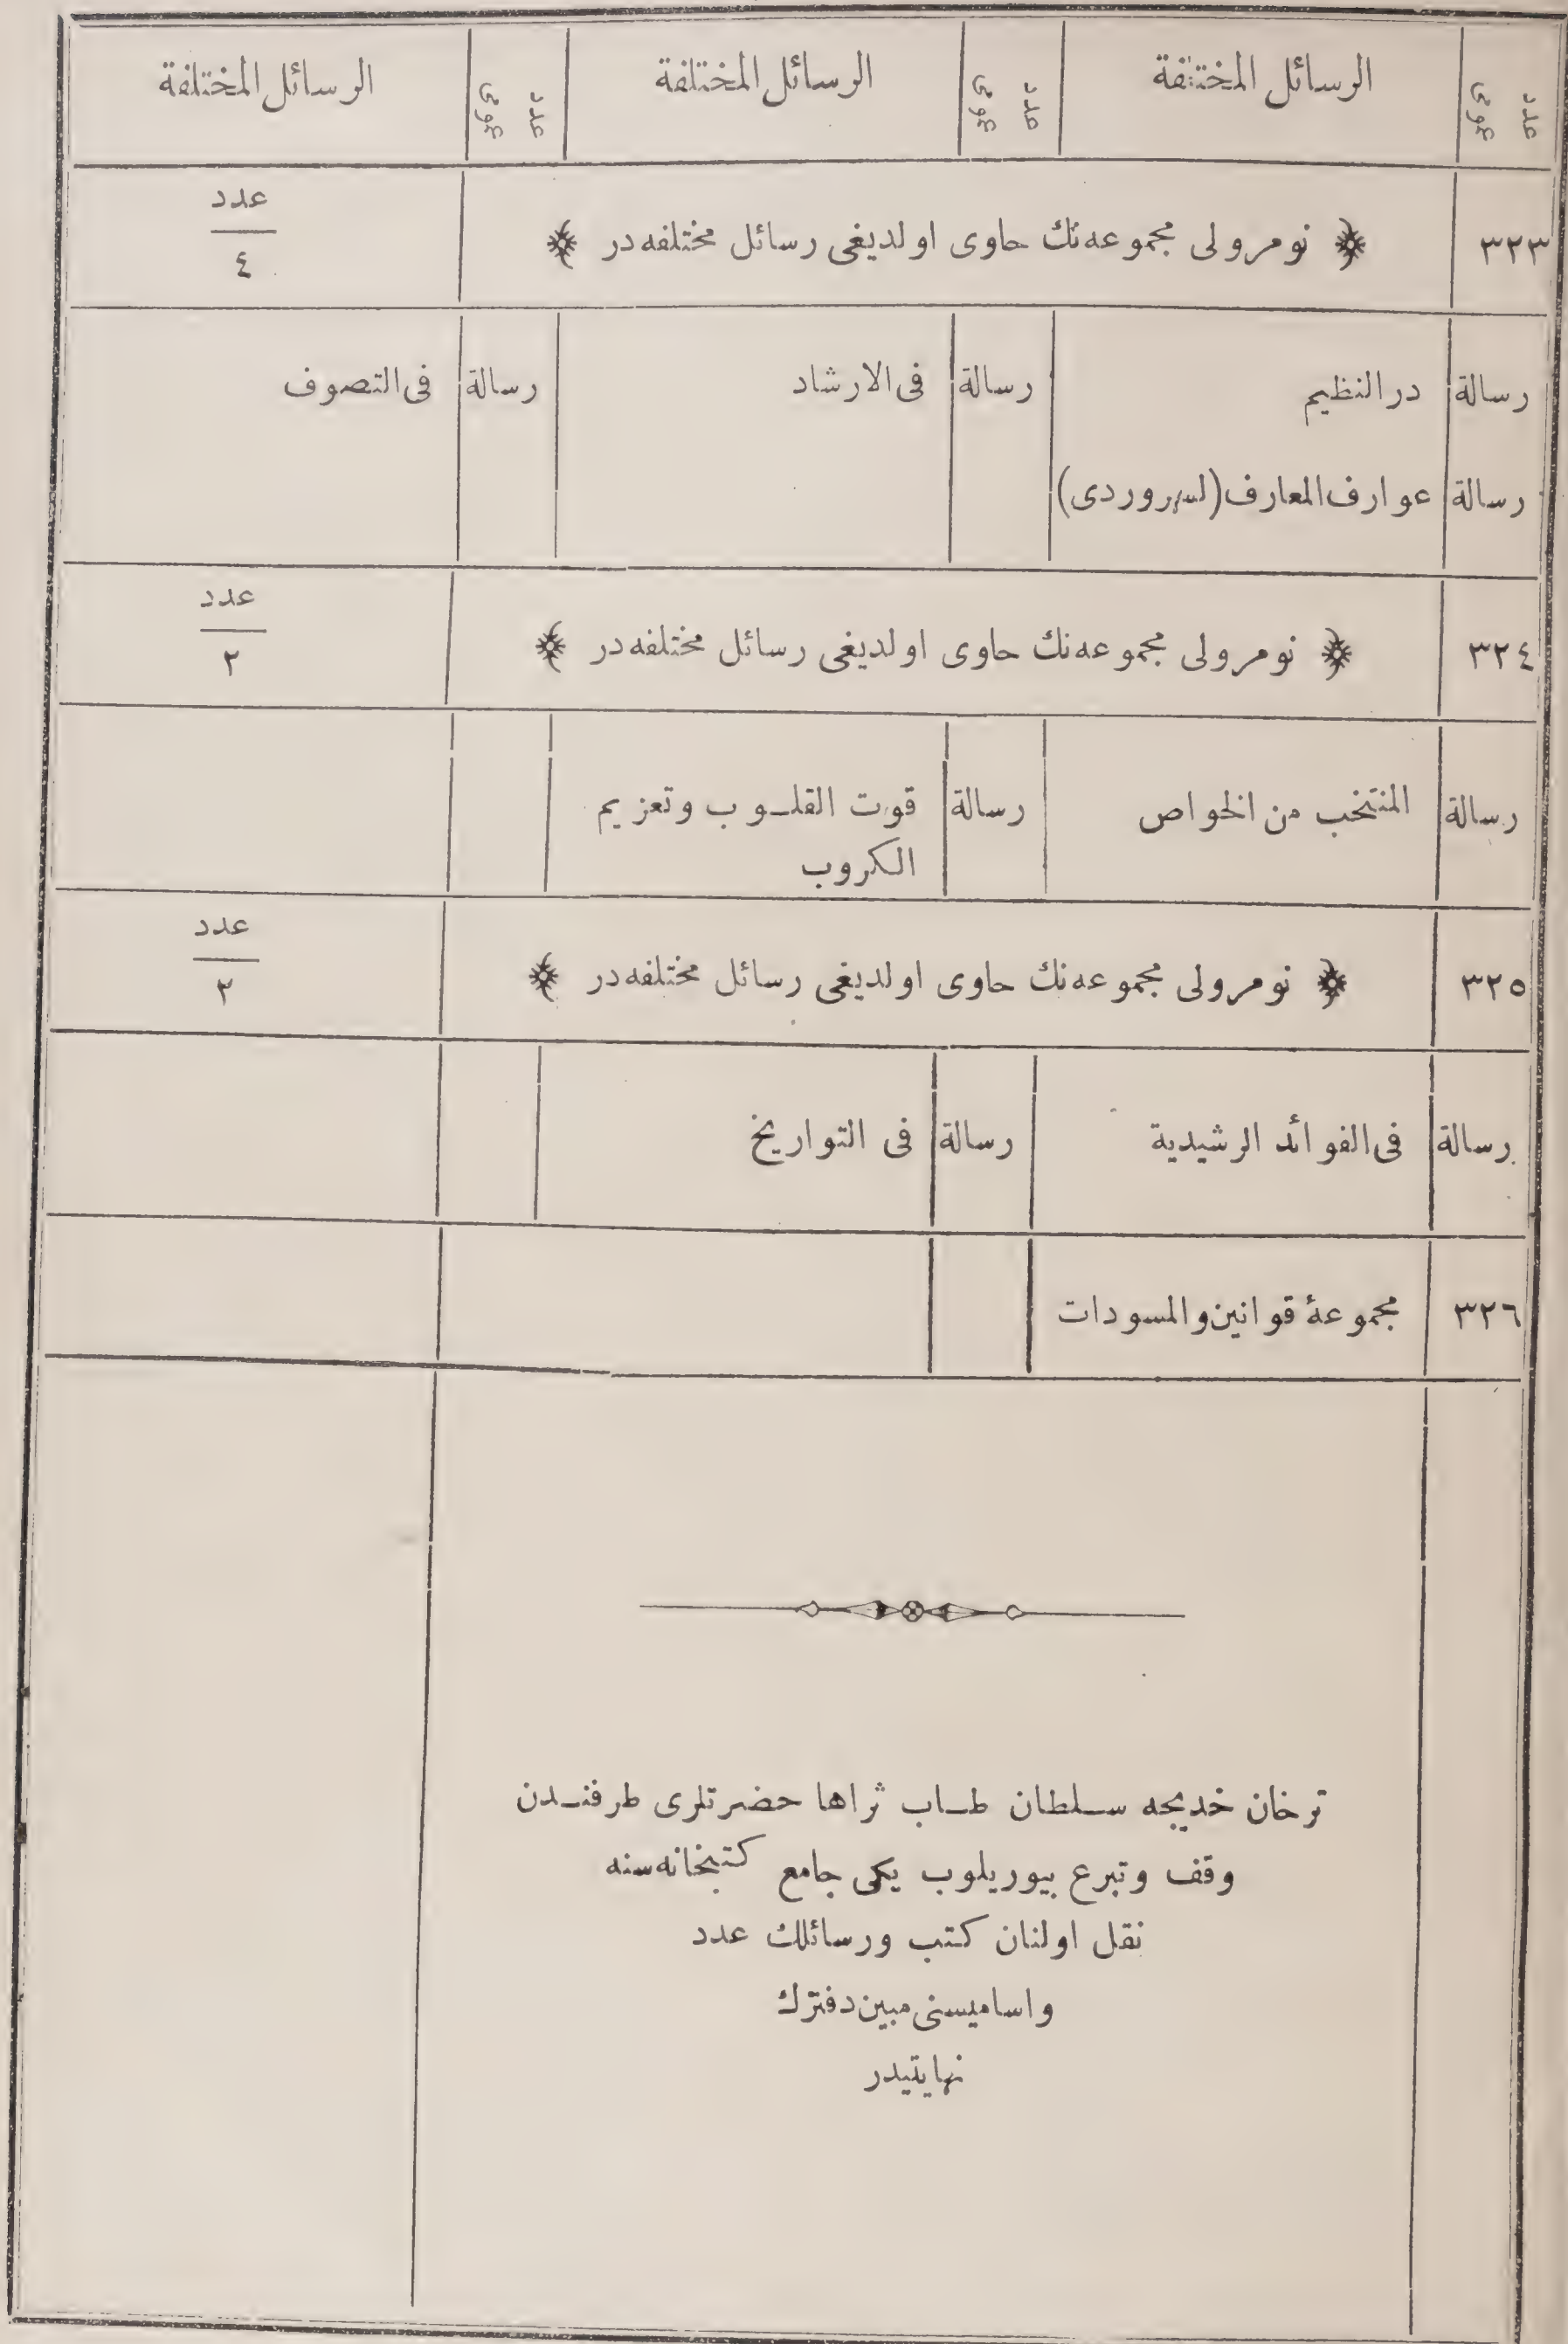 عدد عمومى الرسائل المختلفة عدد عمومى الرسائل المختلفة عدد عمومى الرسائل المختلفة
٣٢٣ ﴿ نومرولى مجموعه‌نك حاوى اولديغى رسائل مختلفه‌در ﴾ عدد ٤
رسالة در النظيم رسالة فى الارشاد رسالة فى التصوف
رسالة عوارف المعارف (لسهروردى)
٣٢٤ ﴿ نومرولى مجموعه‌نك حاوى اولديغى رسائل مختلفه‌در ﴾ عدد ٢
رسالة المنتخب من الخواص رسالة قوت القلوب وتعزيم
الكروب
٣٢٥ ﴿ نومرولى مجموعه‌نك حاوى اولديغى رسائل مختلفه‌در ﴾ عدد ٢
رسالة فى الفوائد الرشيدية رسالة فى التواريخ
٣٢٦ مجموعۀ قوانين والمسودات
ترخان خديجه سلطان طاب ثراها حضرتلرى طرفندن
وقف وتبرع بيوريلوب يكى جامع كتبخانه‌سنه
نقل اولنان كتب ورسائلك عدد
واساميسنى مبين دفترك
نهايتيدر